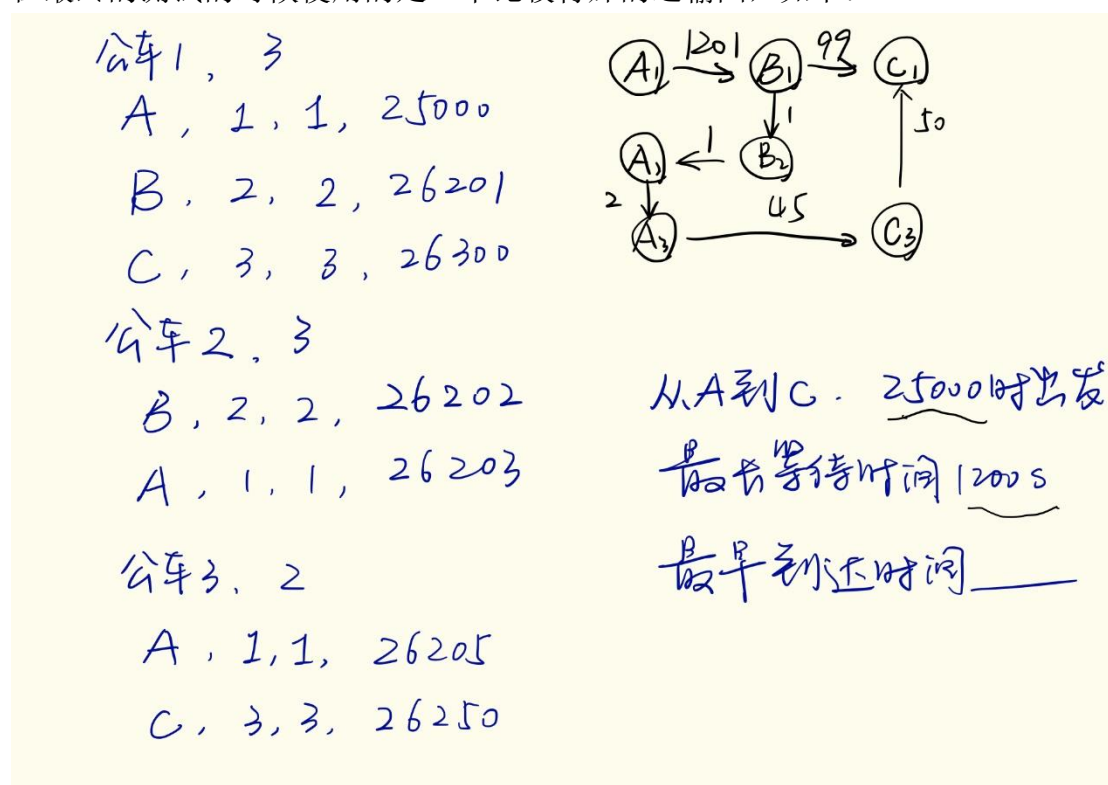 公车1, 3
A, 1, 1, 25000
B, 2, 2, 26201
C, 3, 3, 26300
公车2, 3
B, 2, 2, 26202
A, 1, 1, 26203
公车3, 2
A, 1, 1, 26205
C, 3, 3, 26250
A1 1201 B1 99 C1
1 50
1 B2
2 45
A3 C3
从A到C. 25000时出发
最长等待时间1200s
最早到达时间